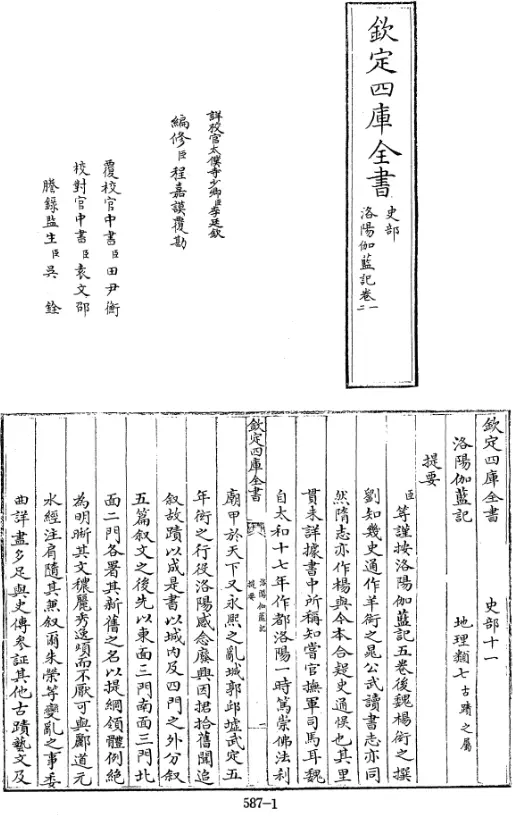 欽定四庫全書
史部
洛陽伽藍記卷一
二
詳校官太僕寺少卿臣李廷欽
編修臣程嘉謨覆勘
覆校官中書臣田尹衡
校對官中書臣袁文邵
謄錄監生臣吳銓
欽定四庫全書 史部十一
洛陽伽藍記 地理類七古蹟之屬
提要
臣等謹按洛陽伽藍記五卷後魏楊衒之撰
劉知幾史通作羊衒之晁公武讀書志亦同
然隋志亦作楊與今本合疑史通悞也其里
貫未詳據書中所稱知嘗官撫軍司馬耳魏
自太和十七年作都洛陽一時篤崇佛法刹
欽定四庫全書
洛陽伽藍記
提要
一
廟甲於天下及永熙之亂城郭邱墟武定五
年衒之行役洛陽感念廢興因捃拾舊聞追
叙故蹟以成是書以城內及四門之外分叙
五篇叙文之後先以東面三門南面三門北
面二門各署其新舊之名以提綱領體例絕
為明晰其文穠麗秀逸煩而不厭可與酈道元
水經注肩隨其兼叙爾朱榮等變亂之事委
曲詳盡多足與史傳參証其他古蹟藝文及
587-1